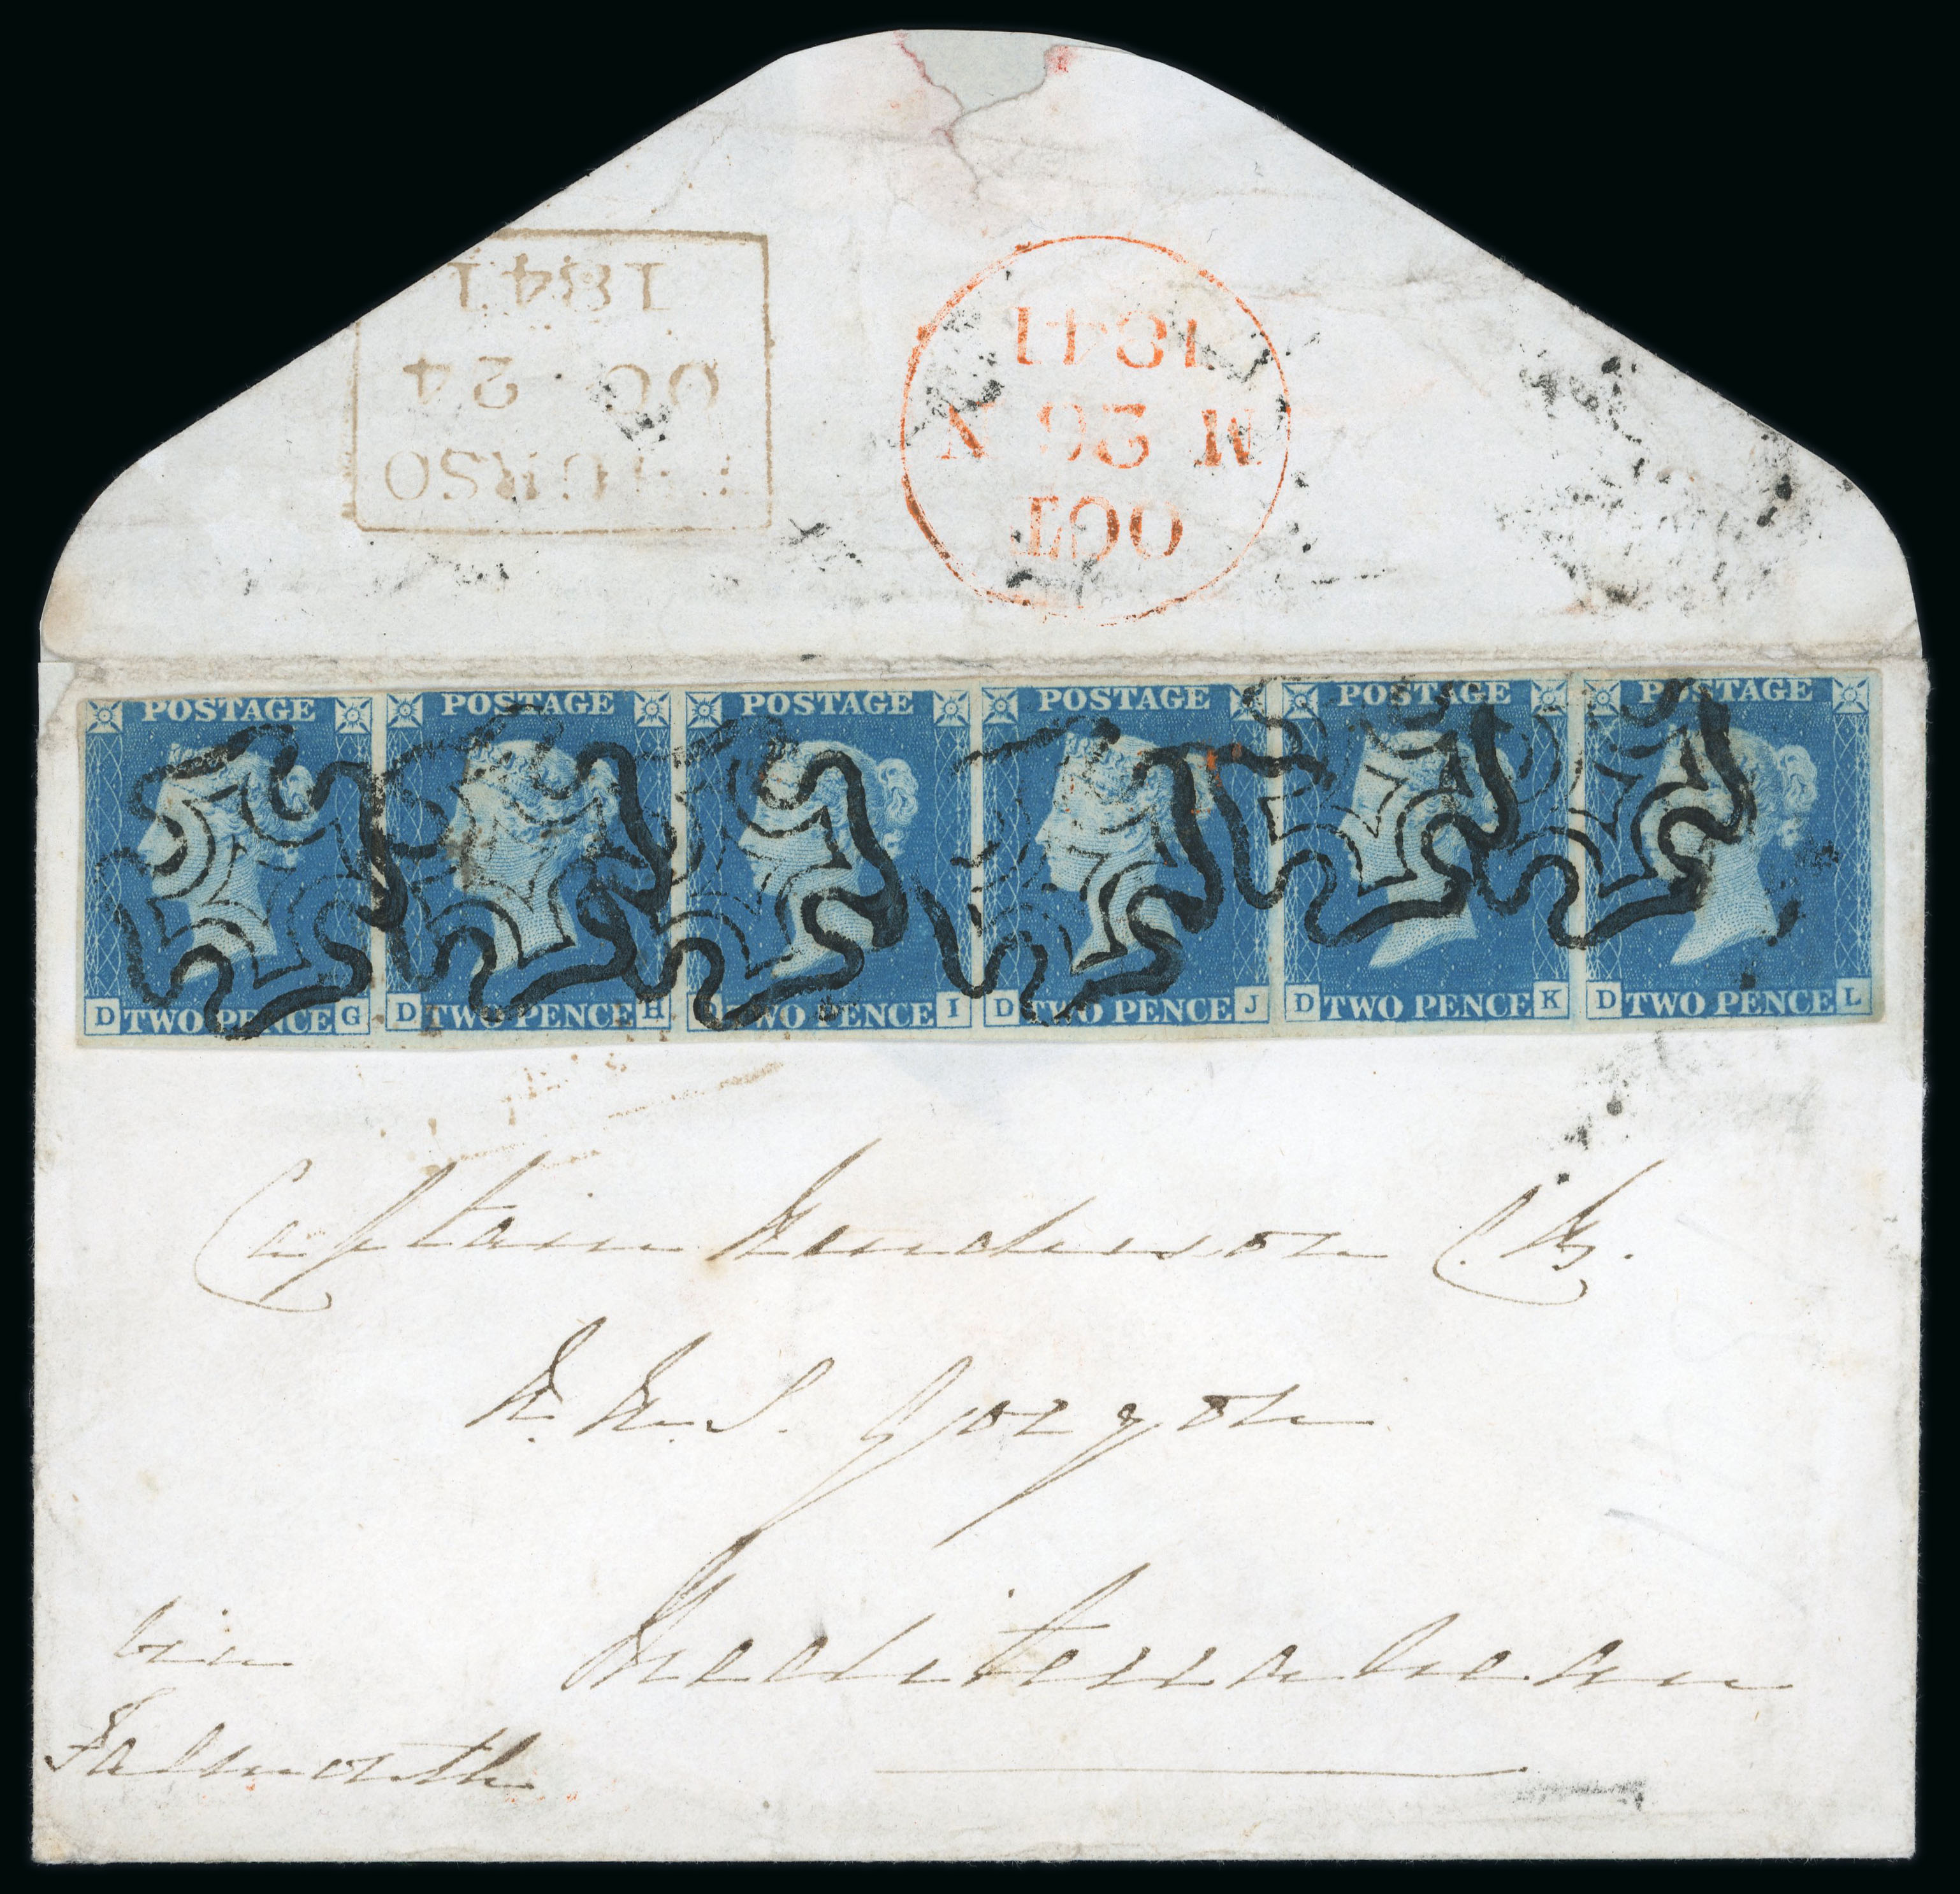 1841
OC 24
THURSO
1841
M 26 N
OCT
POSTAGE POSTAGE POSTAGE POSTAGE POSTAGE POSTAGE
D TWO PENCE G D TWO PENCE H D TWO PENCE I D TWO PENCE J D TWO PENCE K D TWO PENCE L
Captain Henderson C.B.
H.M.S. Gorgon
Mediterranean
via
Falmouth